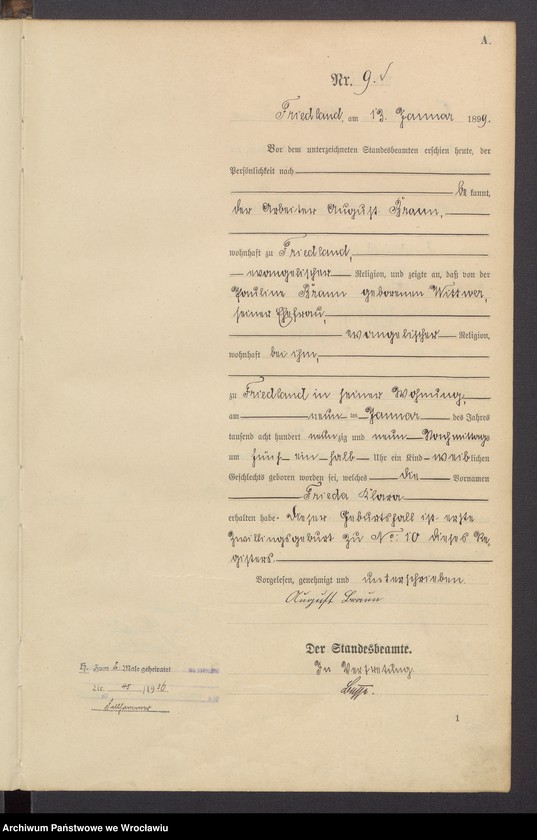 A.
Nr. 9.
Friedland, am 13. Januar 1899.
Vor dem unterzeichneten Standesbeamten erschien heute, der
Persönlichkeit nach
be kannt,
der Arbeiter August Braun,
wohnhaft zu Friedland,
evangelischer Religion, und zeigte an, daß von der
Pauline Braun geborenen Wittwer,
seiner Ehefrau,
evangelischer Religion,
wohnhaft bei ihm,
zu Friedland in seiner Wohnung,
am neun ten Januar des Jahres
tausend acht hundert neunzig und neun Nachmittags
um fünf ein halb Uhr ein Kind weiblichen
Geschlechts geboren worden sei, welches die Vornamen
Frieda Klara
erhalten habe. Dieser Geburtsfall ist erste
Zwillingsgeburt zu No. 10 dieses Re,
gisters.
Vorgelesen, genehmigt und unterschrieben
August Braun
Der Standesbeamte.
In Vertretung.
H. Zum Male geheiratet
Nr. /1926
Fellhammer
1
Archiwum Państwowe we Wrocławiu